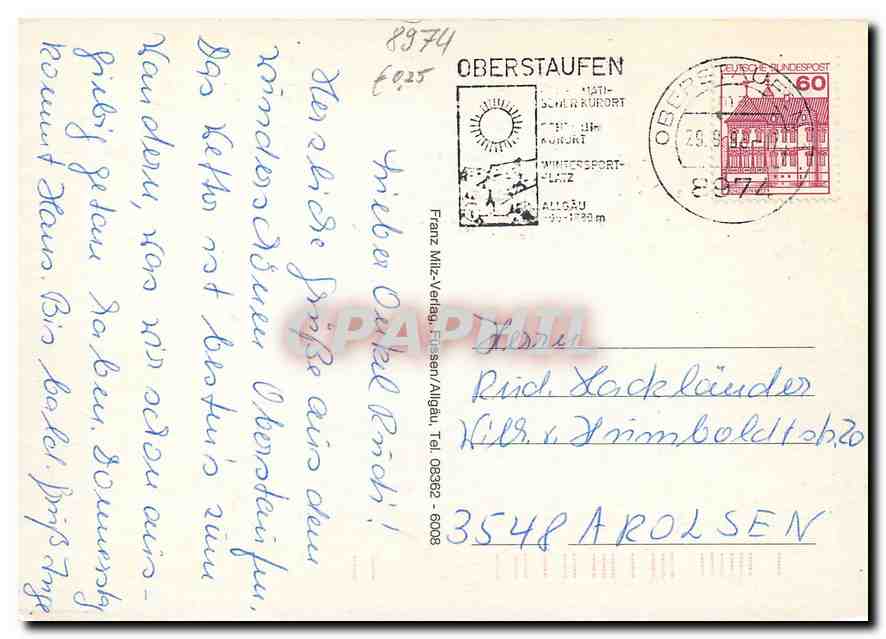 8974
€ 0,25
OBERSTAUFEN
SCHER KURORT
KURORT
WINTERSPORT-
PLATZ
ALLGÄU
DEUTSCHE BUNDESPOST
60
8974
Lieber Onkel Rudi!
Herzliche Grüße aus dem
wunderschönen Oberstaufen.
Das Wetter ist bestens zum
Wandern, was wir schon aus-
giebig getan haben. Donnerstag
kommt Hans. Bis bald. Gruß Inge
Franz Milz-Verlag, Füssen/Allgäu, Tel. 08362 - 6008
CPAPHIL
Herrn
Rud. Hackländer
Wilh. v. Humboldtstr. 20
3548 AROLSEN